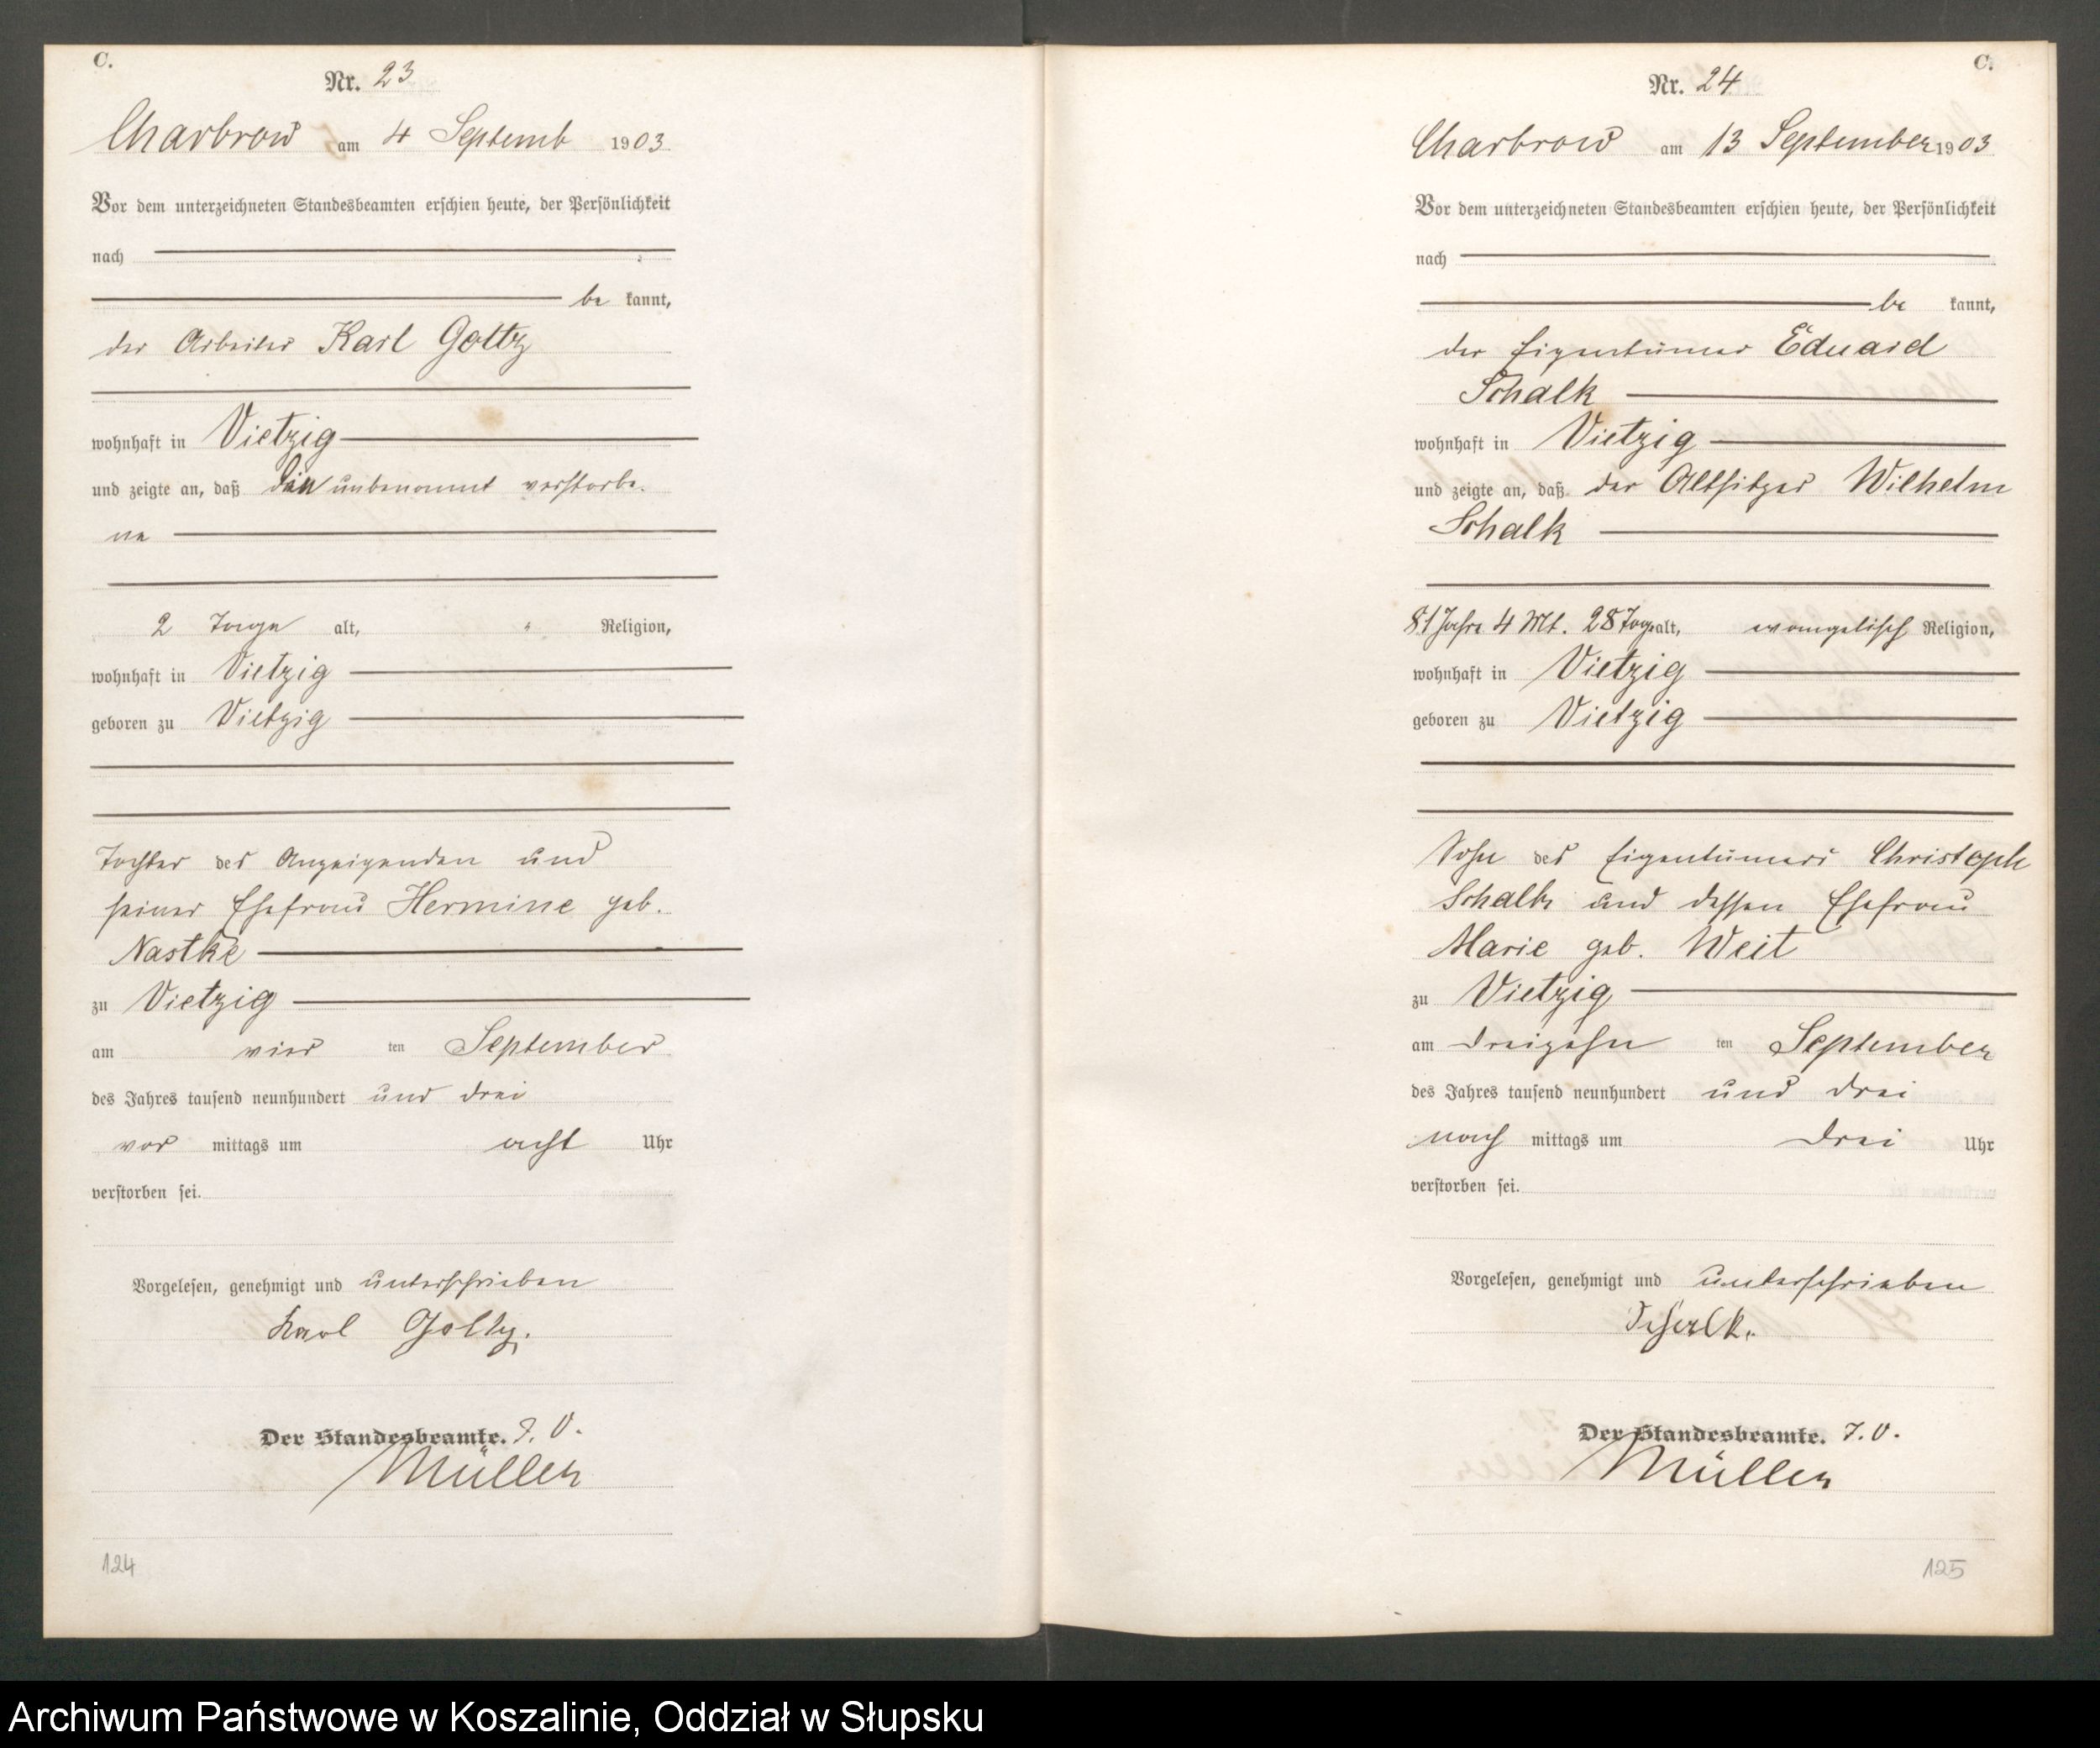 C.
Nr. 23
Charbrow am 4 Septemb 1903
Vor dem unterzeichneten Standesbeamten erschien heute, der Persönlichkeit
nach
be kannt,
der Arbeiter Karl Goltz
wohnhaft in Vietzig
und zeigte an, daß die unbenannt verstorbe-
ne
2 Tage alt, Religion,
wohnhaft in Vietzig
geboren zu Vietzig
Tochter des Anzeigenden und
seiner Ehefrau Hermine geb.
Nastke
zu Vietzig
am vier ten September
des Jahres tausend neunhundert und drei
vor mittags um acht Uhr
verstorben sei.
Vorgelesen, genehmigt und unterschrieben
Karl Goltz.
Der Standesbeamte. J. V.
Müller
124
C.
Nr. 24
Charbrow am 13 September 1903
Vor dem unterzeichneten Standesbeamten erschien heute, der Persönlichkeit
nach
be kannt,
der Eigentümer Eduard
Schalk
wohnhaft in Vietzig
und zeigte an, daß der Altsitzer Wilhelm
Schalk
81 Jahre 4 Mt. 28 Tage alt, evangelisch Religion,
wohnhaft in Vietzig
geboren zu Vietzig
Sohn des Eigentümers Christoph
Schalk und dessen Ehefrau
Marie geb. Weit
zu Vietzig
am dreizehn ten September
des Jahres tausend neunhundert und drei
nach mittags um drei Uhr
verstorben sei.
Vorgelesen, genehmigt und unterschrieben
Schalk.
Der Standesbeamte. J. V.
Müller
125
Archiwum Państwowe w Koszalinie, Oddział w Słupsku